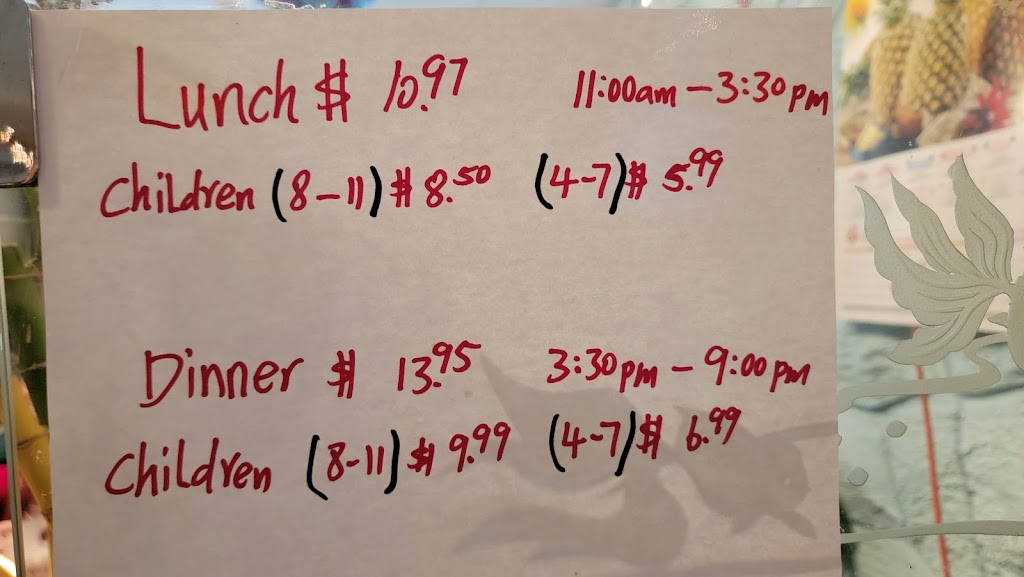 Lunch $ 10.97 11:00am - 3:30pm
Children (8-11) $ 8.50 (4-7) $ 5.99
Dinner $ 13.95 3:30pm - 9:00pm
Children (8-11) $ 9.99 (4-7) $ 6.99